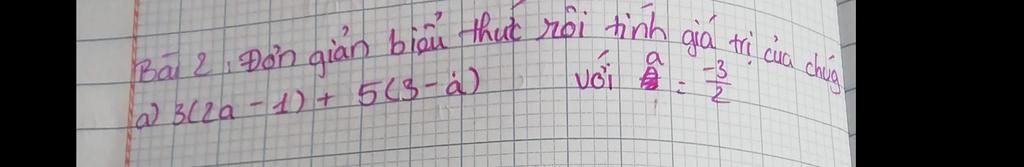 Bài 2. Đơn giản biểu thức rồi tính giá trị của chúg
a) 3(2a - 1) + 5(3 - a) với a = -3/2